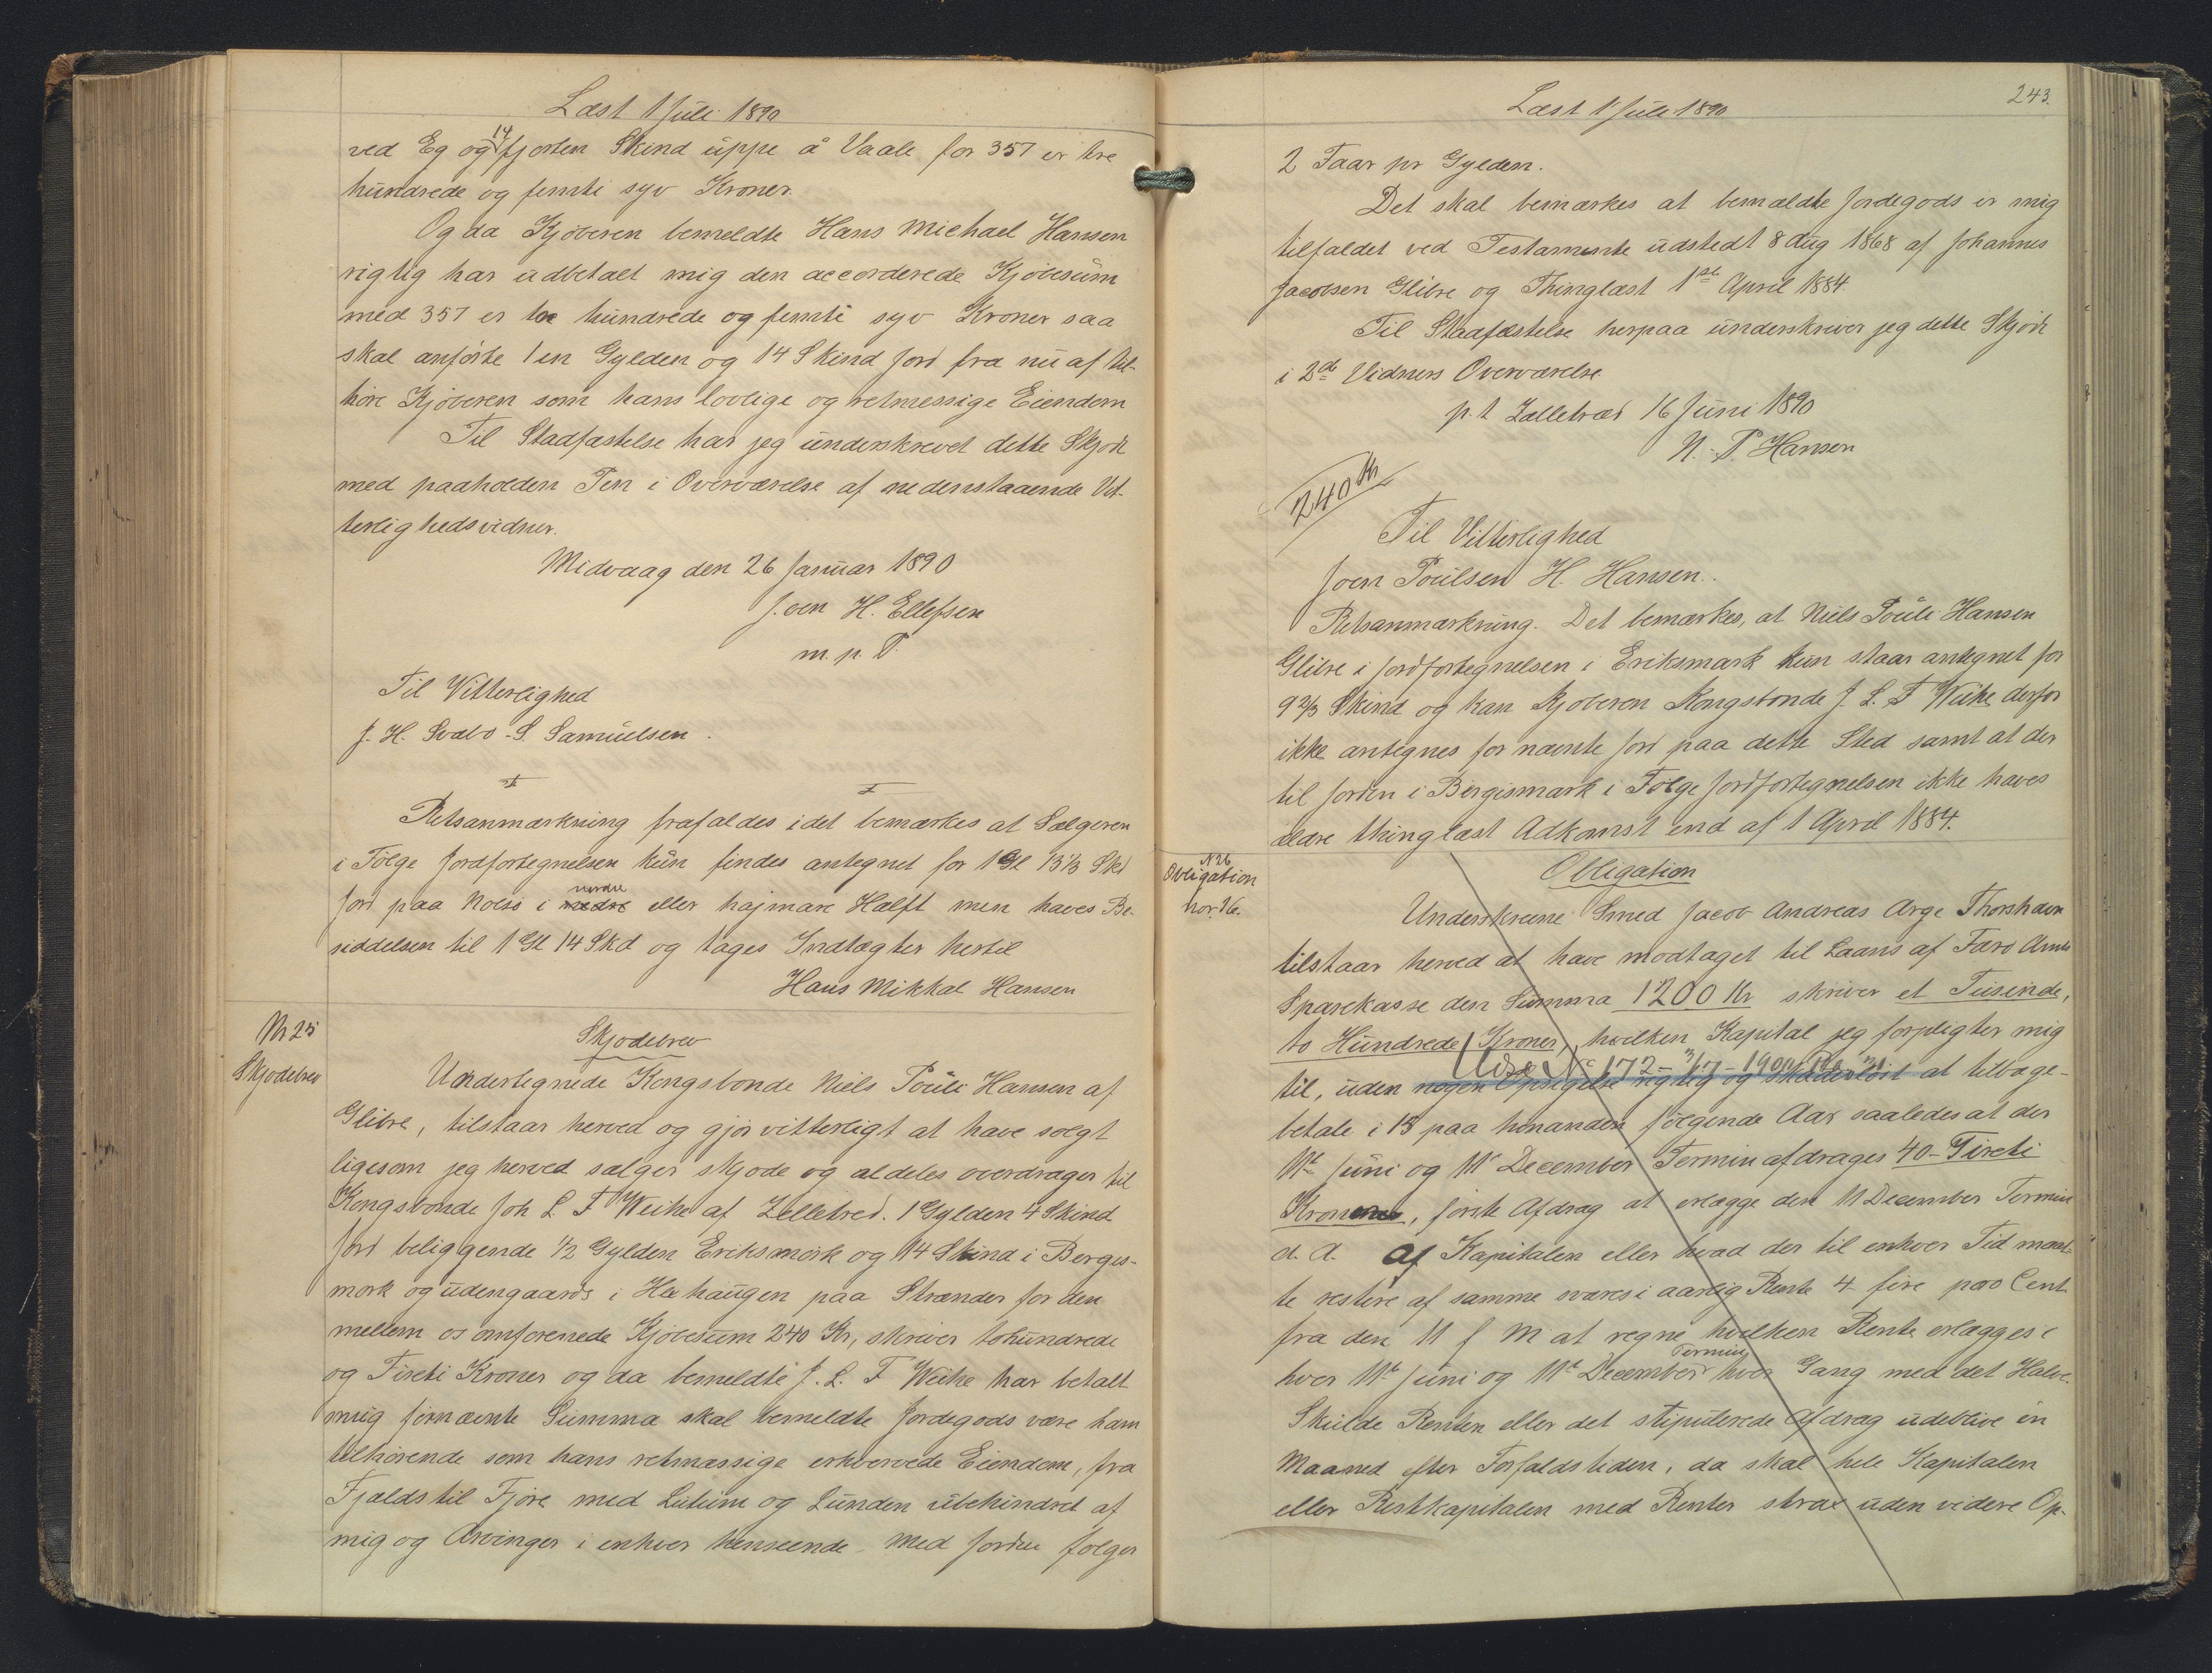 Læst 1 Juli 1890
ved Eg og 14 fjorten Skind uppe å Vaale for 357 er tre
hundrede og femti syv Kroner.
Og da Kjøberen bemeldte Hans Michael Hansen
rigtig har udbetalt mig den accorderede Kjøbesum
med 357 er tre hundrede og femti syv Kroner saa
skal anførte 1 en Gylden og 14 Skind Jord fra nu af til-
høre Kjøberen som hans lovlige og retmessige Eiendom
Til Stadfæstelse har jeg underskrevet dette Skjøde
med paaholden Pen i Overværelse af nedenstaaende Vit-
terlighedsvidner.
Midvaag den 26 Januar 1890
Joen H. Ellefsen
m. p. P.
Til Vitterlighed
J. H. Svabo - S. Samuelsen.
Retsanmærkning frafaldes idet bemærkes at Sælgeren
i Følge Jordfortegnelsen kun findes antegnet for 1 Gl 13⅓ Skd
Jord paa Nolsø i nedre nordre eller højmare Halft men haves Be-
siddelsen til 1 Gl 14 Skd og tages Indtægter hertil
Hans Mikkal Hansen
Nr 25
Skjodebrev
Skjodebrev
Undertegnede Kongsbonde Niels Pouli Hansen af
Glibre, tilstaar herved og gjør vitterligt at have solgt
ligesom jeg herved sælger skjøde og aldeles overdrager til
Kongsbonde Joh L F Weihe af Zelletred. 1 Gylden 4 Skind
Jord beliggende ½ Gylden Eriksmørk og 14 Skind i Borges-
mork og udengaards i Hahaugen paa Strænder for den
mellem os omforenede Kjøbesum 240 Kr, skriver tohundrede
og Fireti Kroner og da bemeldte J. L. F Weihe har betalt
mig fornævnte Summa skal bemeldte Jordegods være ham
tilhørende som hans retmæssige erhvervede Eiendom, fra
Fjælds til Fjøre med Lutum og Lunden ubehindret af
mig og Arvinger i enhver henseende. Med Jorden følger
243.
Læst 1 Juli 1890
2 Faar pr Gylden.
Det skal bemærkes at bemældte Jordegods er mig
tilfaldet ved Testamente udstedt 8 Aug 1868 af Johannes
Jacobsen Glibre og Thinglæst 1ste April 1884.
Til Stadfæstelse herpaa underskriver jeg dette Skjøde
i 2de Vidners Overværelse
p. t Zelletræd 16 Juni 1890
N. P. Hansen
240 Kr
Til Vitterlighed
Joen Poulsen H. Hansen.
Retsanmærkning. Det bemærkes, at Niels Pouli Hansen
Glibre i Jordfortegnelsen i Eriksmark kun staar antegnet for
9⅔ Skind og kan Kjøberen Kongsbonde J. L. F Weihe derfor
ikke antegnes for nævnte Jord paa dette Sted samt at der
til Jorden i Børgismark i Følge Jordfortegnelsen ikke haves
ældre thinglæst Adkomst end af 1 April 1884.
N 26
Obligation
nor. 26.
Obligation
Underskrevne Smed Jacob Andreas Arge Thorshavn
tilstaar herved at have modtaget til Laans af Færø Amts
Sparekasse den Summa 1200 Kr skriver et Tusinde,
to Hundrede Kroner, hvilken Kapital jeg forpligter mig
Udsl. No 172 - 3/7 - 1900
til, uden nogen Opsigelse rigtig og skadesløst at tilbage-
betale i 15 paa hinanden følgende Aar saaledes at der
11te Juni og 11te December Termin afdrages 40 - Fireti
Kroner, første Afdrag at erlægge den 11 December Termin
d. A. Af Kapitalen eller hvad der til enhver Tid maat-
te restere af samme svares i aarlig Rente 4 - fire pro Cent
fra den 11 f M at regne hvilken Rente erlægges i
hver 11te Juni og 11te December Termin hver Gang med det Halve.
Skulde Renten eller det stipulerede Afdrag udeblive en
Maaned efter Forfaldstiden, da skal hele Kapitalen
eller Restkapitalen med Renter strax uden videre Op-